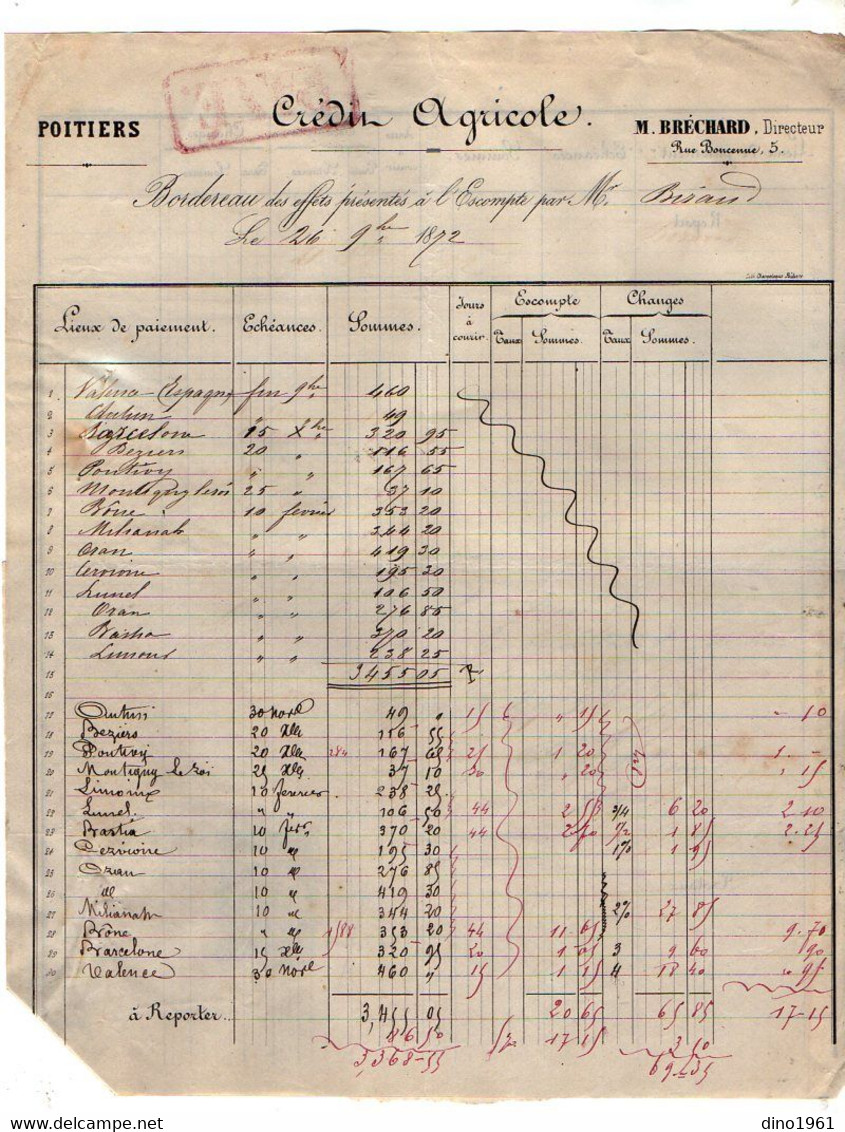 Crédit Agricole.
POITIERS
M. BRÉCHARD, Directeur
Rue Boncenne, 5.
Bordereau des effets présentés à l'Escompte par Mr.
Le 26 9bre 1872
Lieux de paiement. Echéances. Sommes. Jours à courir. Escompte Changes
Taux Sommes. Taux Sommes.
1 Valence (Espagne) fin 9bre 460
2 " 49
3 Barcelone 15 Xbre 320 95
4 Beziers 20 " 116 55
5 Pontivy " " 167 65
6 25 " 37 10
7 Bône 10 fevrier 353 20
8 Milianah " " 344 20
9 Oran " " 419 30
10 " " 195 30
11 Lunel " " 106 50
12 Oran " " 276 85
13 Bastia " " 370 20
14 Limoux " " 238 25
15 3455 05
16
17 30 Nov 49 " 15 6 " 15 " 10
18 Beziers 20 Xbre 116 55
19 Pontivy 20 Xbre 284 167 65 25 1 20 1. -
20 Montigny le Roi 25 Xbre 37 10 30 " 20 " 15
21 10 fevrier 238 25
22 Lunel " " 106 50 44 2 55 3/4 6 20 2.10
23 Bastia 10 fevr 370 20 44 2 70 1/2 1 85 2.25
24 10 " 195 30 1% 1 95
25 Oran 10 " 276 85
26 d 10 " 419 30
27 Milianah 10 " 344 20 2% 27 85
28 Brône " " 1588 353 20 44 11 65 9.70
29 Barcelone 15 Xbre 320 95 20 1 05 3 9 60 " 90
30 Valence 30 Nov 460 " 15 1 15 4 18 40 " 95
à Reporter.. 3,455 05 20 65 65 85 17-15
86 50 17 15 3 50
3,368-55 69-35
dino1961